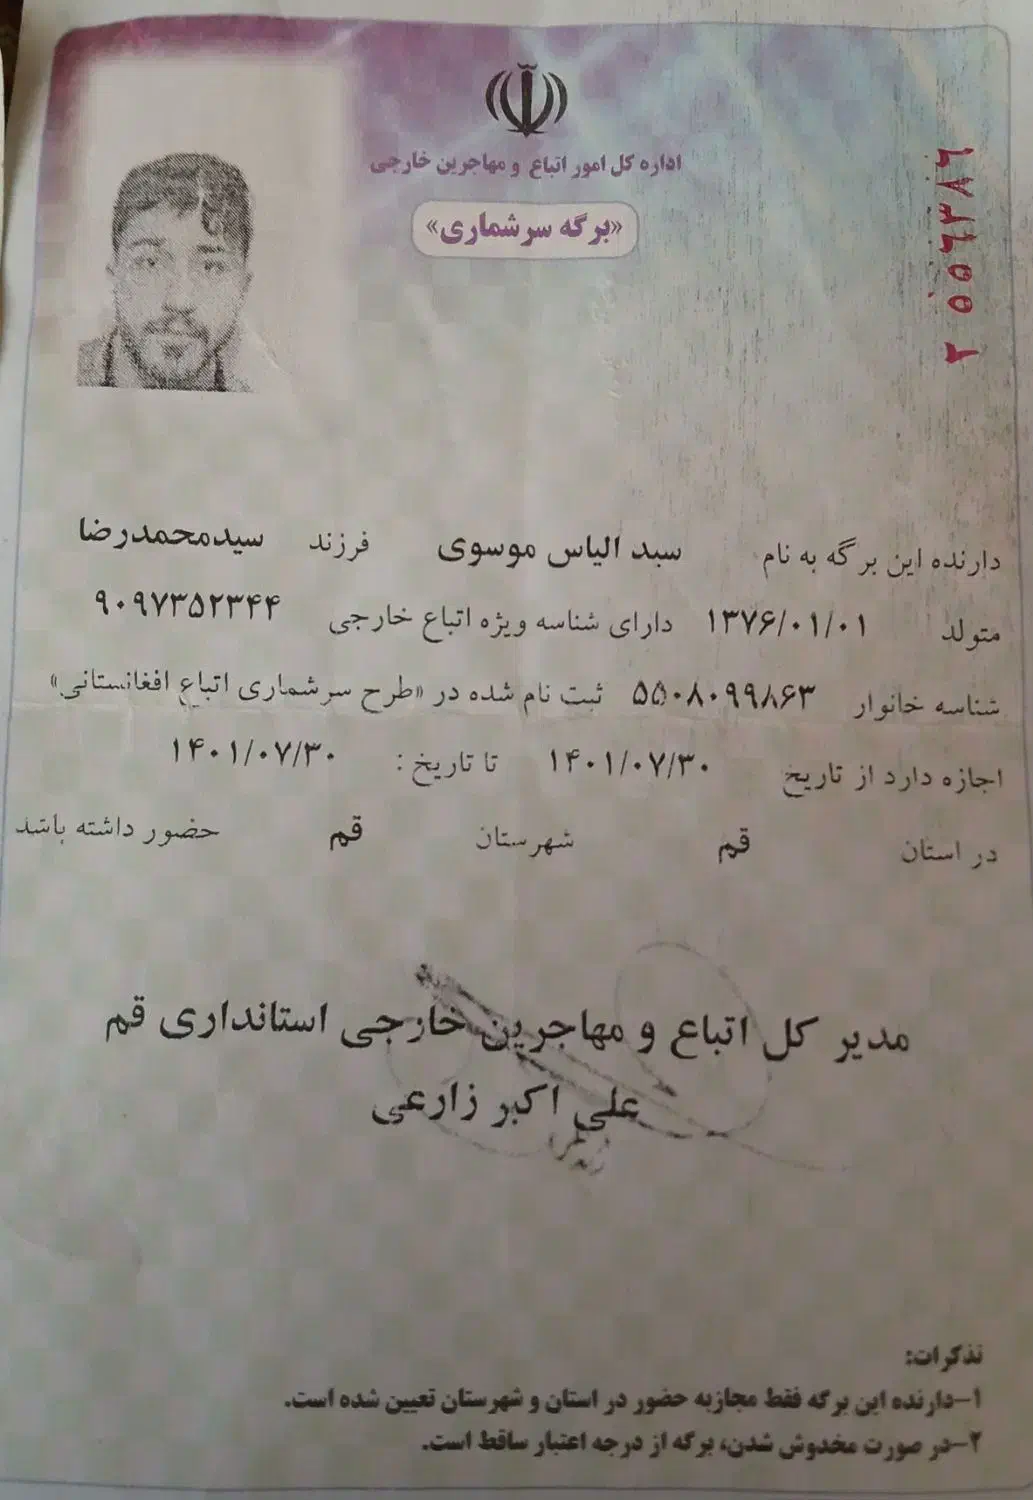 اداره کل امور اتباع و مهاجرین خارجی
«برگه سرشماری»
دارنده این برگه به نام سید الیاس موسوی فرزند سیدمحمدرضا
متولد ۱۳۷۶/۰۱/۰۱ دارای شناسه ویژه اتباع خارجی ۹۰۹۷۳۵۲۳۴۴
شناسه خانوار ۵۵۰۸۰۹۹۸۶۳ ثبت نام شده در «طرح سرشماری اتباع افغانستانی»
اجازه دارد از تاریخ ۱۴۰۱/۰۷/۳۰ تا تاریخ : ۱۴۰۱/۰۷/۳۰
در استان قم شهرستان قم حضور داشته باشد
مدیر کل اتباع و مهاجرین خارجی استانداری قم
علی اکبر زارعی
تذکرات:
۱-دارنده این برگه فقط مجازبه حضور در استان و شهرستان تعیین شده است.
۲-در صورت مخدوش شدن، برگه از درجه اعتبار ساقط است.